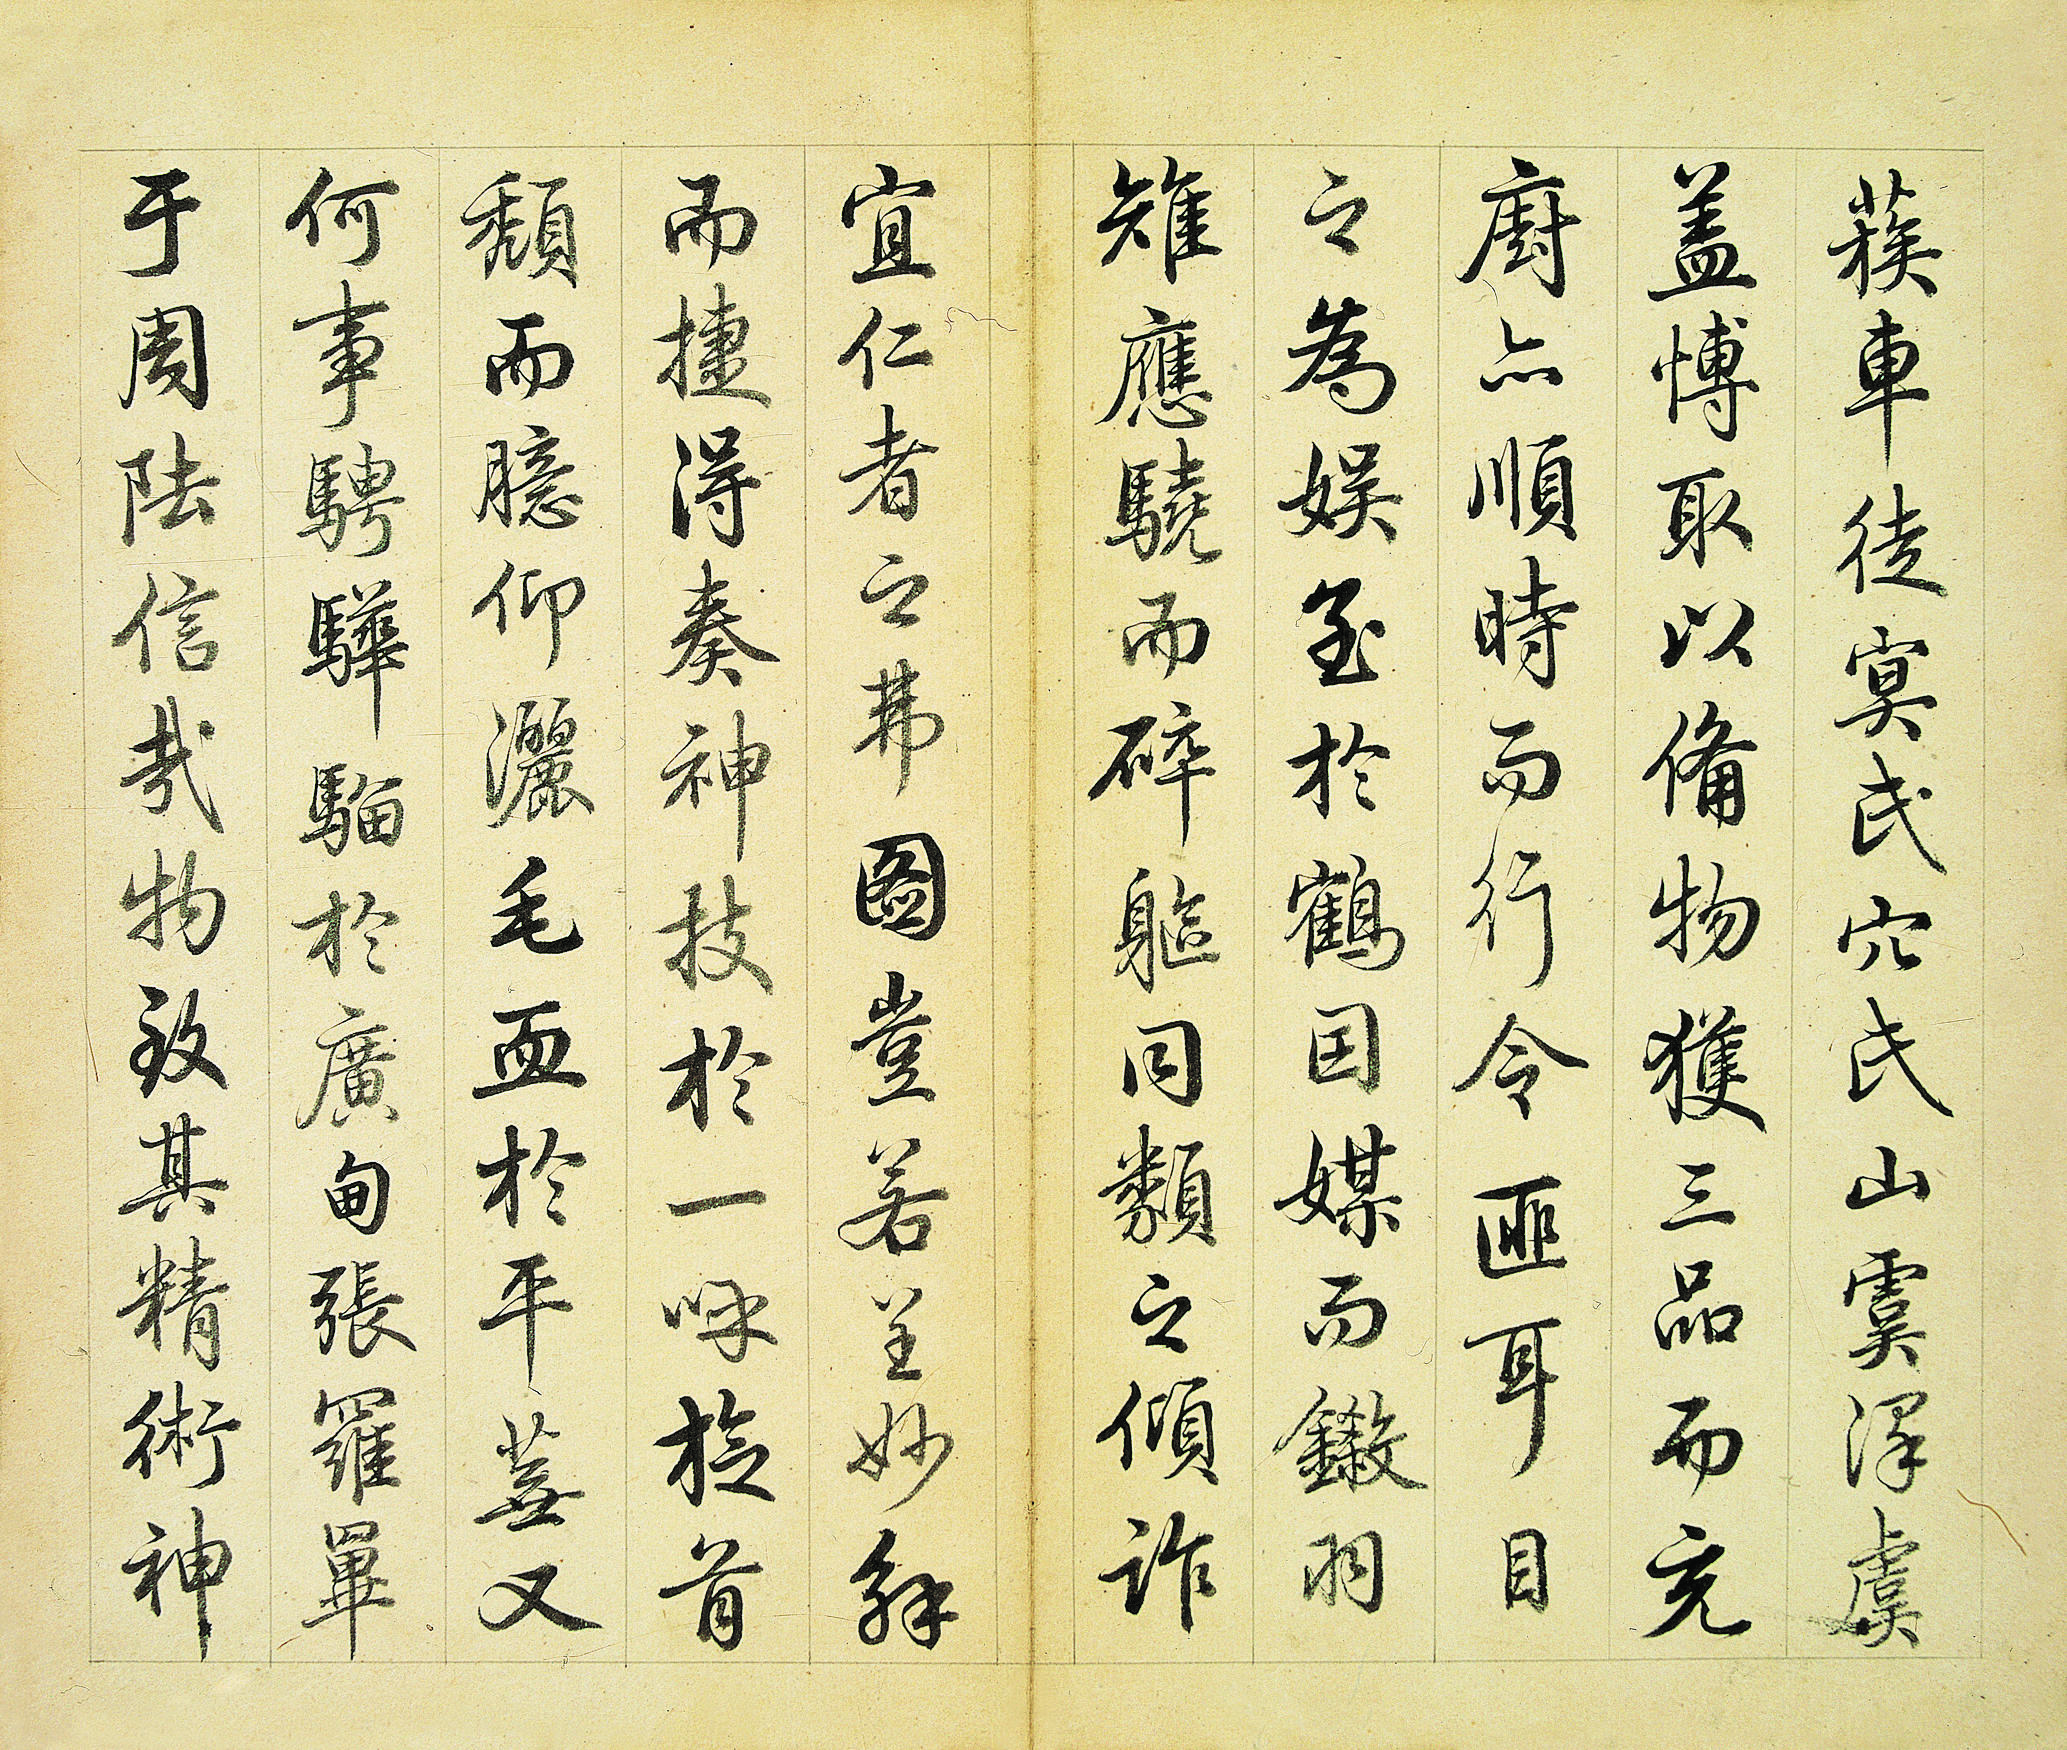 蔟車徒冥氏穴氏山虞澤虞
盖博取以備物獲三品而充
廚亦順時而行令匪耳目
之為娱至於鶴因媒而鎩羽
雉應驍而碎軀同類之傾詐
宜仁者之弗圖豈若呈妙解
而捷得奏神技於一呼旋首
頹而臆仰灑毛血於平蕪又
何事騁驊騮於廣甸張羅罼
于周陸信哉物致其精術神